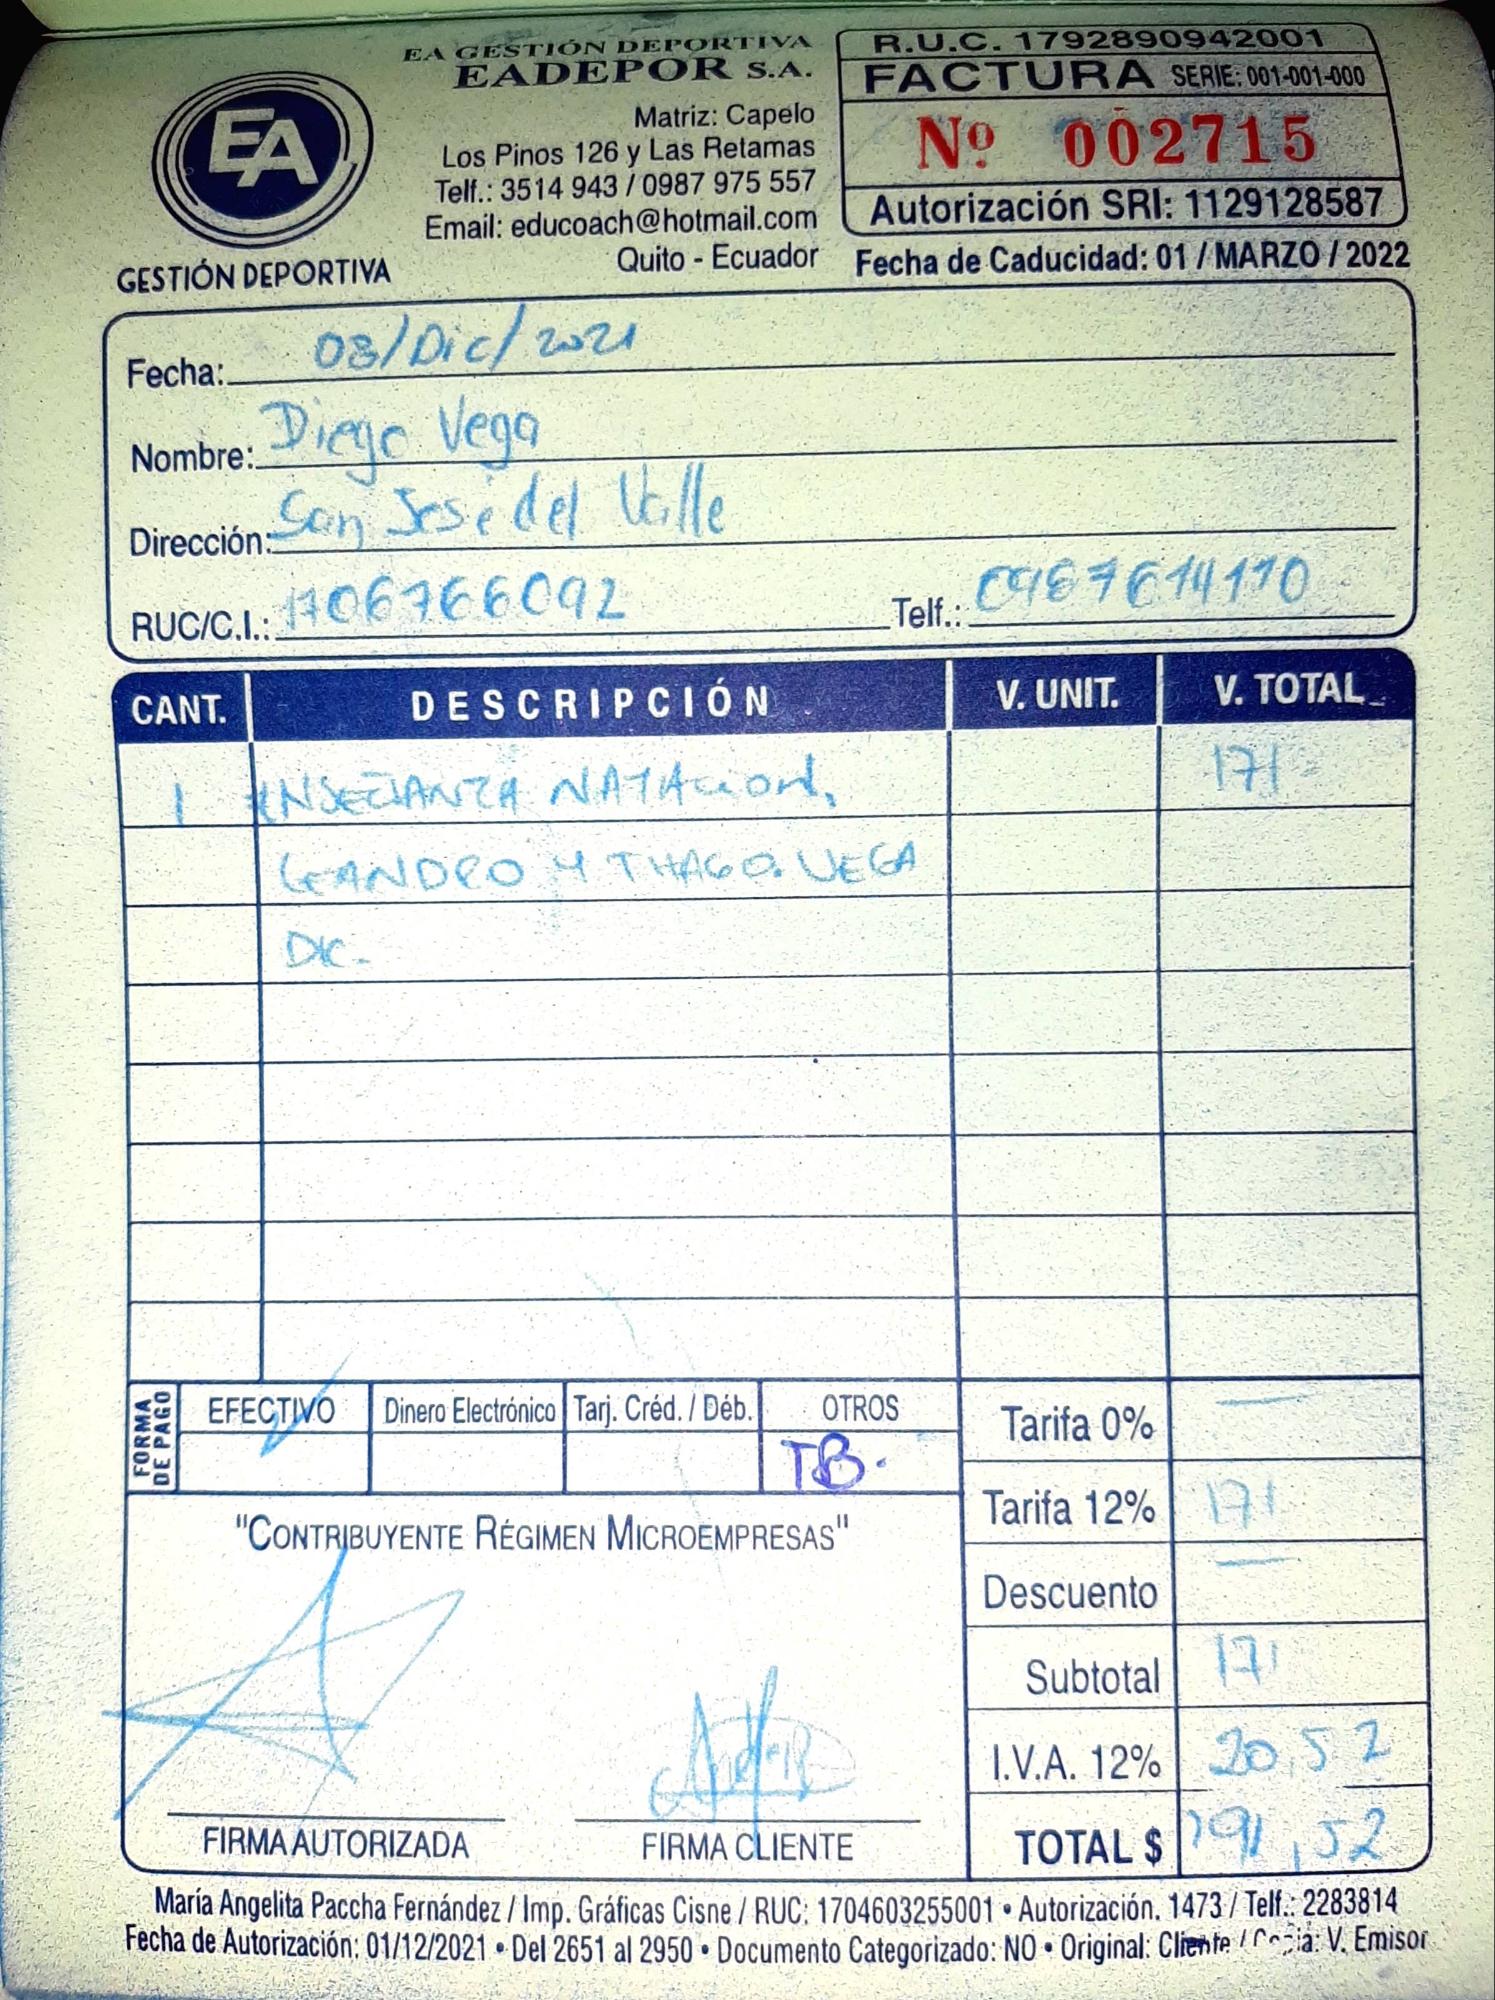 EA GESTIÓN DEPORTIVA
EADEPOR S.A.
EA
GESTIÓN DEPORTIVA
Matriz: Capelo
Los Pinos 126 y Las Retamas
Telf.: 3514 943 / 0987 975 557
Email: educoach@hotmail.com
Quito - Ecuador
R.U.C. 1792890942001
FACTURA SERIE: 001-001-000
Nº 002715
Autorización SRI: 1129128587
Fecha de Caducidad: 01 / MARZO / 2022
Fecha: 03/Dic/2021
Nombre: Diego Vega
Dirección: San José del Valle
RUC/C.I.: 1706766092 Telf.: 0987614110
CANT. DESCRIPCIÓN V. UNIT. V. TOTAL
1 ENSEÑANZA NATACION. 171
LEANDRO Y THIAGO. VEGA
DIC.
FORMA DE PAGO
EFECTIVO Dinero Electrónico Tarj. Créd. / Déb. OTROS
TB.
Tarifa 0% —
Tarifa 12% 171
Descuento —
Subtotal 171
I.V.A. 12% 20,52
TOTAL $ 191,52
"CONTRIBUYENTE RÉGIMEN MICROEMPRESAS"
FIRMA AUTORIZADA FIRMA CLIENTE
María Angelita Paccha Fernández / Imp. Gráficas Cisne / RUC: 1704603255001 • Autorización. 1473 / Telf.: 2283814
Fecha de Autorización: 01/12/2021 • Del 2651 al 2950 • Documento Categorizado: NO • Original: Cliente / Copia: V. Emisor